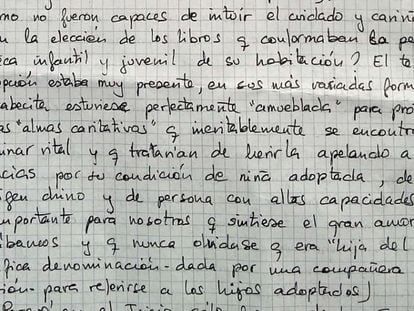 mo no fueron capaces de intuir el cuidado y cariñ
n la elección de los libros q conformaban la pe
ca infantil y juvenil de su habitación? El te
pción estaba muy presente, en sus más variadas form
abecita estuviese perfectamente "amueblada" para pro
as "almas caritativas" q inevitablemente se encontra
inar vital y q tratarían de herirla apelando a
cias por su condición de niña adoptada, de
igen chino y de persona con altas capacidades
mportante para nosotros q sintiese el gran amor
ábamos y q nunca olvidase q era "hija del
fica denominación - dada por una compañera
ión - para referirse a los hijos adoptados)